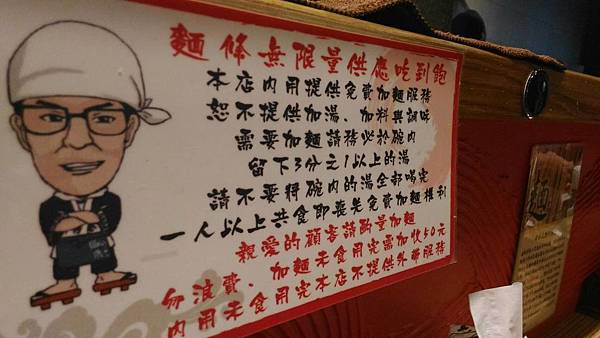 麵條無限量供應吃到飽
本店內用提供免費加麵服務
恕不提供加湯、加料與調味
需要加麵請務必於碗內
留下3分之1以上的湯
請不要將碗內的湯全部喝完
一人以上共食即喪失免費加麵權利
親愛的顧客請酌量加麵
勿浪費、加麵未食用完需加收50元
內用未食用完本店不提供外帶服務
麵